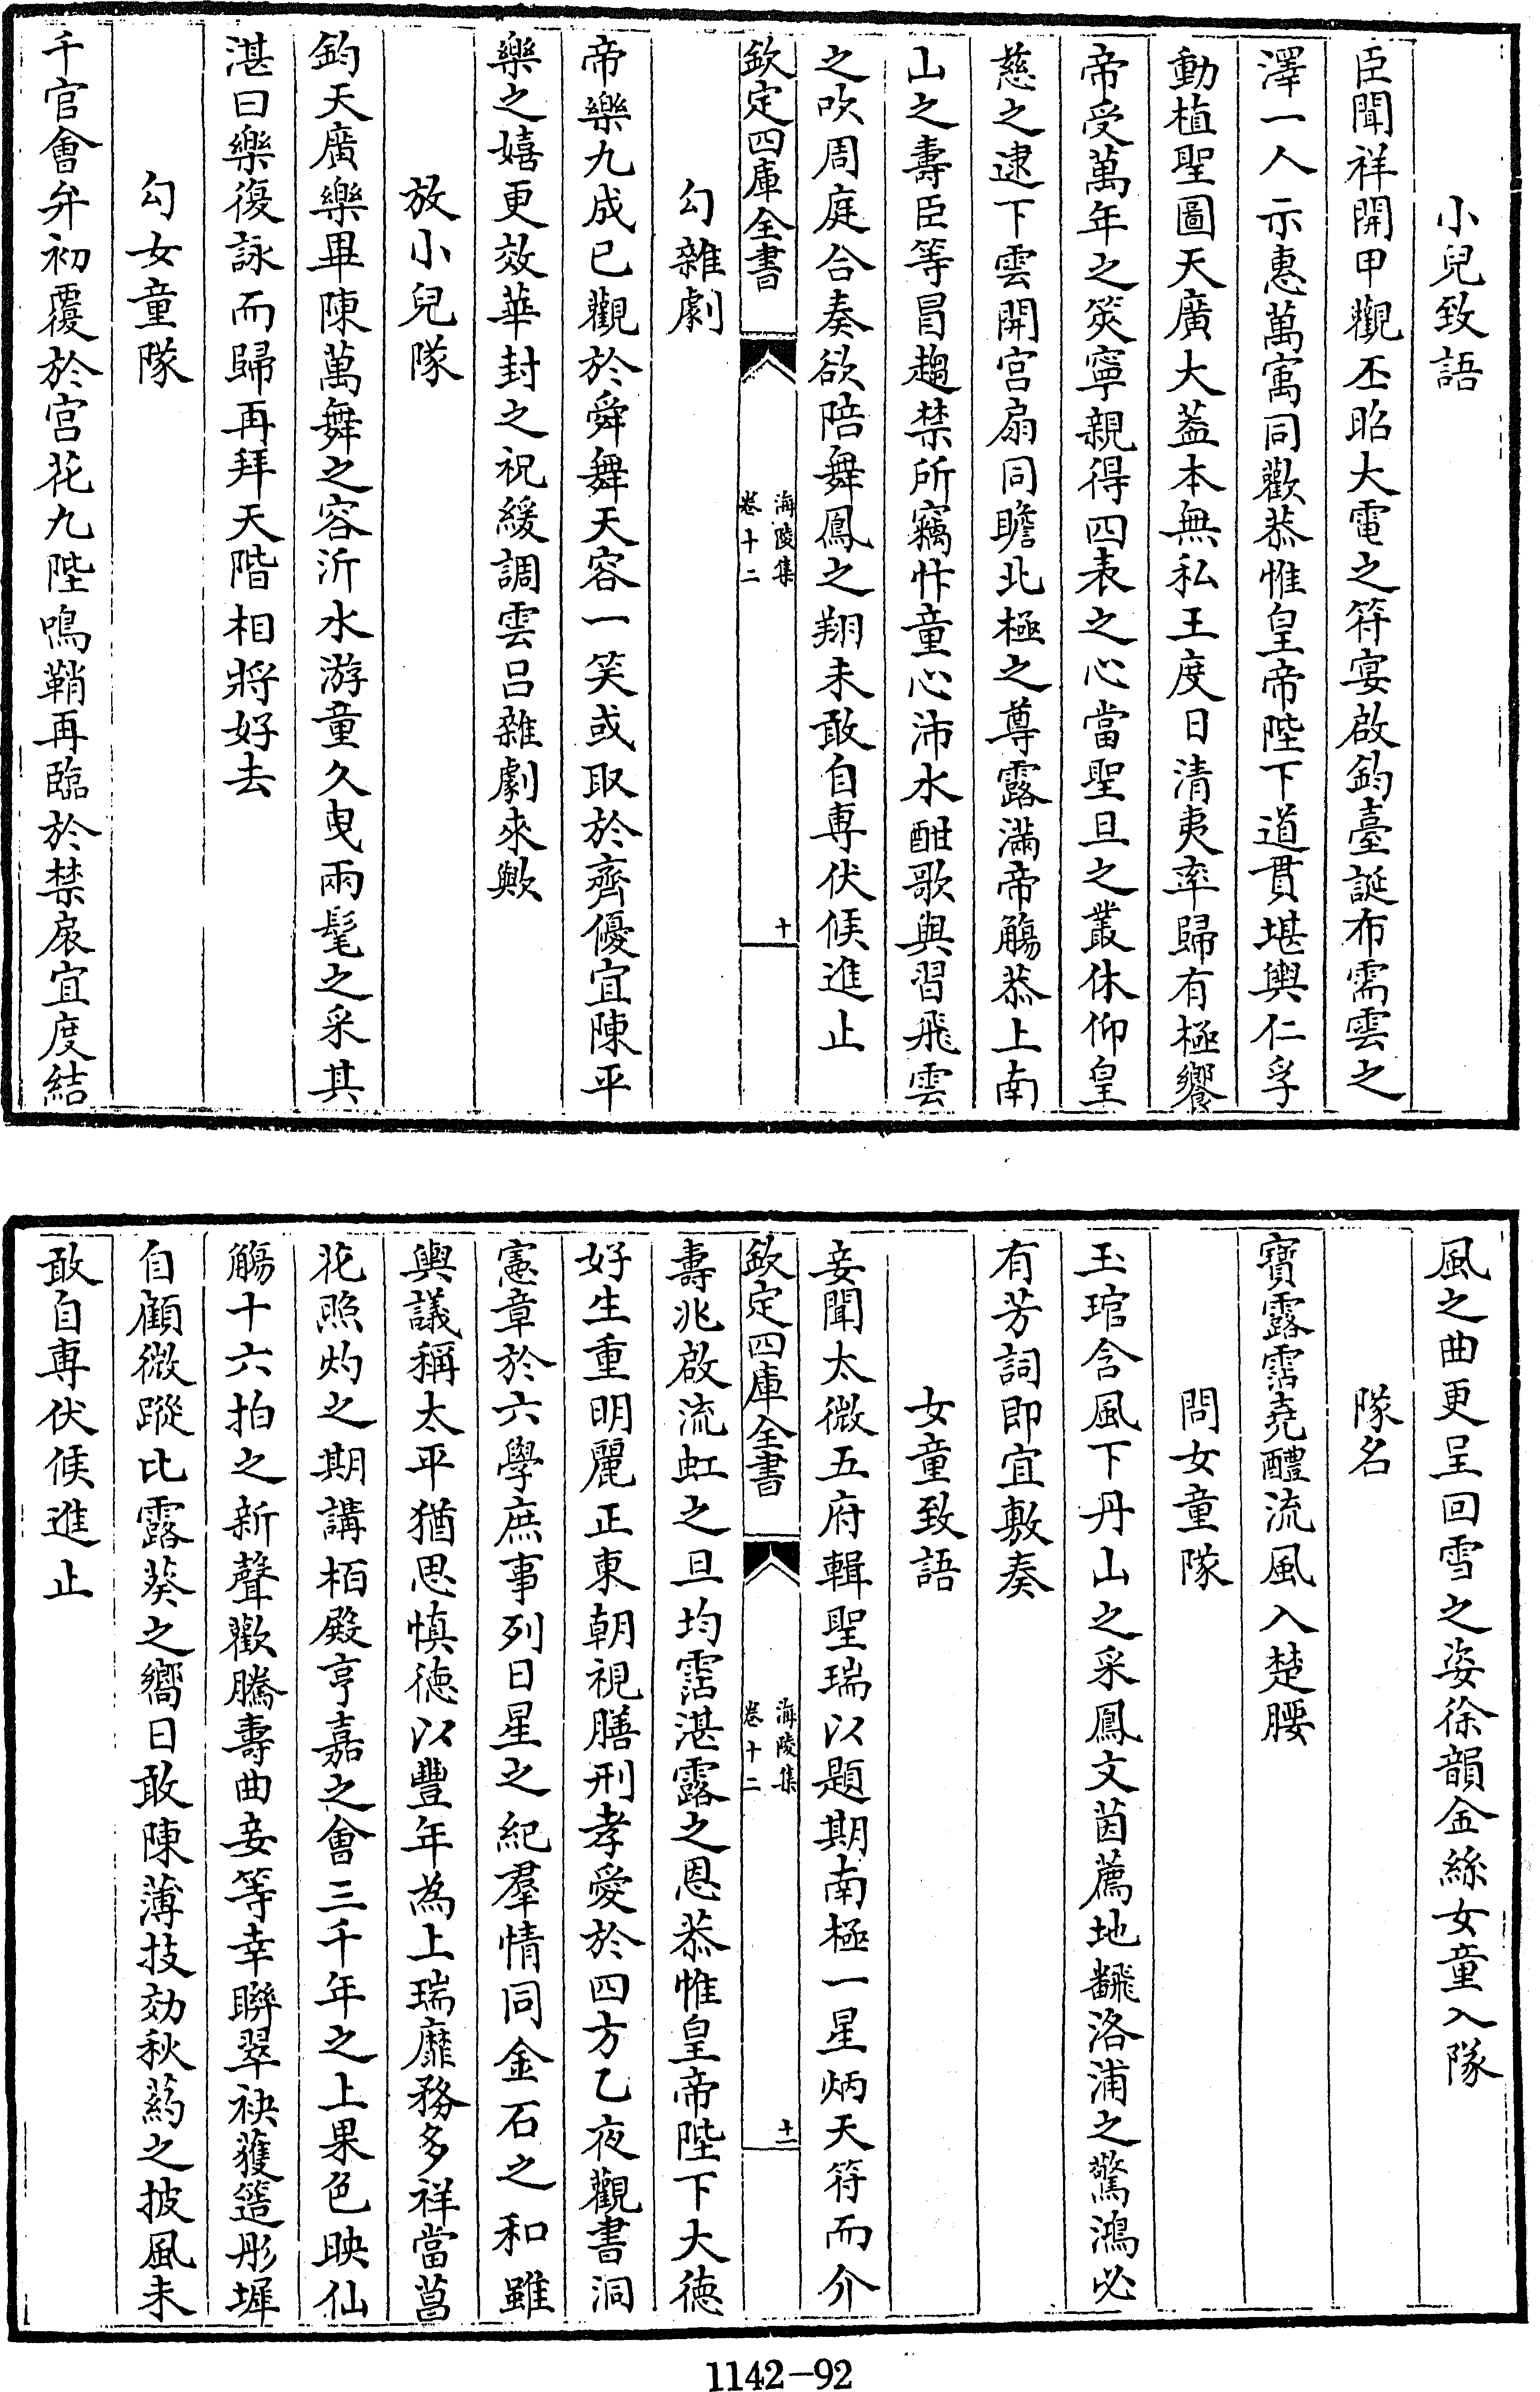 小兒致語
臣聞祥開甲觀丕昭大電之符宴啟鈞臺誕布需雲之
澤一人示惠萬㝢同歡恭惟皇帝陛下道貫堪輿仁孚
動植聖圖天廣大葢本無私王度日清夷率歸有極饗
帝受萬年之筴寧親得四表之心當聖旦之叢休仰皇
慈之逮下雲開宮扇同瞻北極之尊露滿帝觴恭上南
山之壽臣等冒趨禁所竊忭童心沛水酣歌與習飛雲
之吹周庭合奏欲陪舞鳳之翔未敢自專伏候進止
欽定四庫全書
海陵集
卷十二
十
勾雜劇
帝樂九成已觀於舜舞天容一笑或取於齊優宜陳平
樂之嬉更效華封之祝緩調雲呂雜劇來歟
放小兒隊
鈞天廣樂畢陳萬舞之容沂水游童久曳兩髦之采其
湛曰樂復詠而歸再拜天階相將好去
勾女童隊
千官會弁初覆於宫花九陛鳴鞘再臨於禁扆宜度結
風之曲更呈回雪之姿徐韻金絲女童入隊
隊名
寶露霑堯醴流風入楚腰
問女童隊
玉琯含風下丹山之采鳳文茵薦地飜洛浦之驚鴻必
有芳詞即宜敷奏
女童致語
妾聞太微五府輯聖瑞以題期南極一星炳天符而介
欽定四庫全書
海陵集
卷十二
十一
壽兆啟流虹之旦均霑湛露之恩恭惟皇帝陛下大德
好生重明麗正東朝視膳刑孝愛於四方乙夜觀書洞
憲章於六學庶事列日星之紀羣情同金石之和雖
輿議稱太平猶思慎德以豐年為上瑞靡務多祥當菖
花照灼之期講栢殿亨嘉之會三千年之上果色映仙
觴十六拍之新聲歡騰壽曲妾等幸聯翠袂獲簉彤墀
自顧微蹤比露葵之嚮日敢陳薄技効秋药之披風未
敢自專伏候進止
1142-92